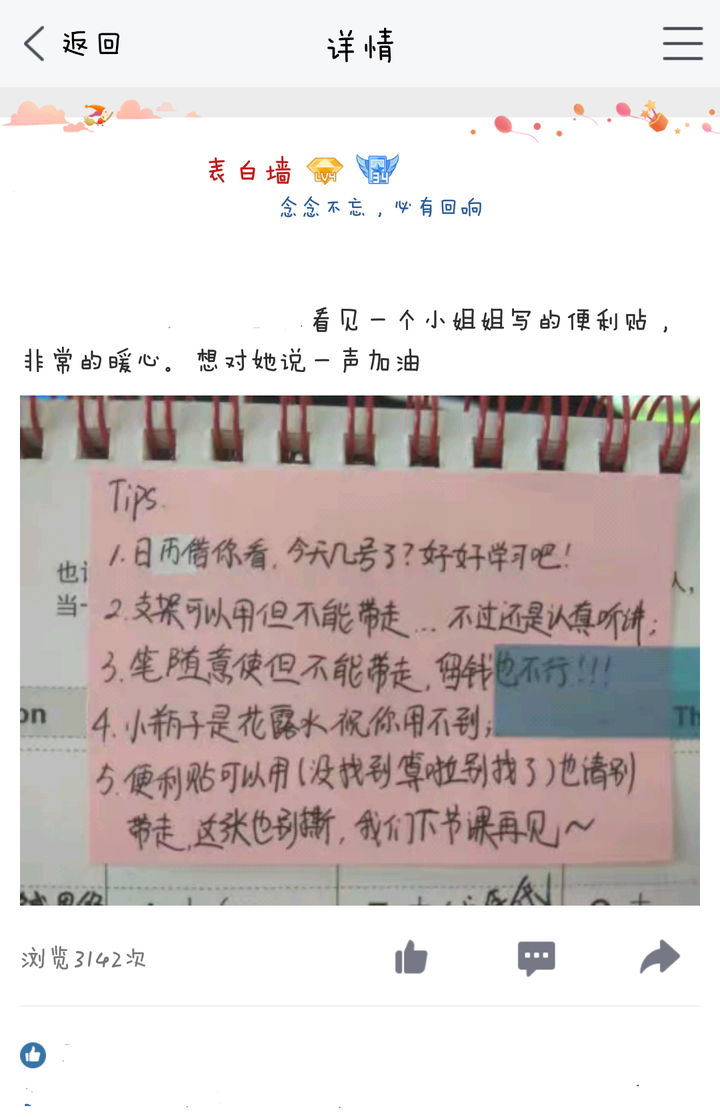 返回
详情
表白墙 LV4 34
念念不忘，必有回响
看见一个小姐姐写的便利贴，
非常的暖心。想对她说一声加油
Tips.
1.日历借你看，今天几号了？好好学习吧！
2.支架可以用但不能带走…不过还是认真听讲；
3.笔随意使但不能带走，留钱也不行！！！
4.小瓶子是花露水祝你用不到；
5.便利贴可以用（没找到算啦别找了）也请别
带走，这张也别撕，我们下节课再见～
也
当一
人，
on
Th
浏览3142次